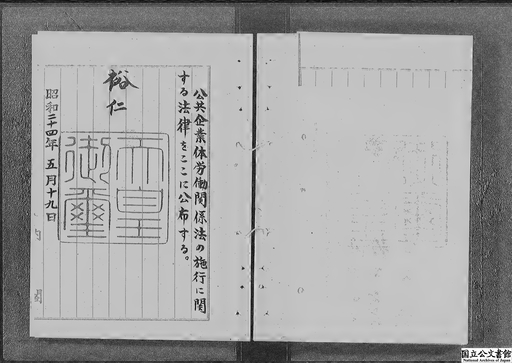 公共企業体労働関係法の施行に関
する法律をここに公布する。
裕仁
天皇
御璽
昭和二十四年五月十九日
内
閣
国立公文書館
National Archives of Japan